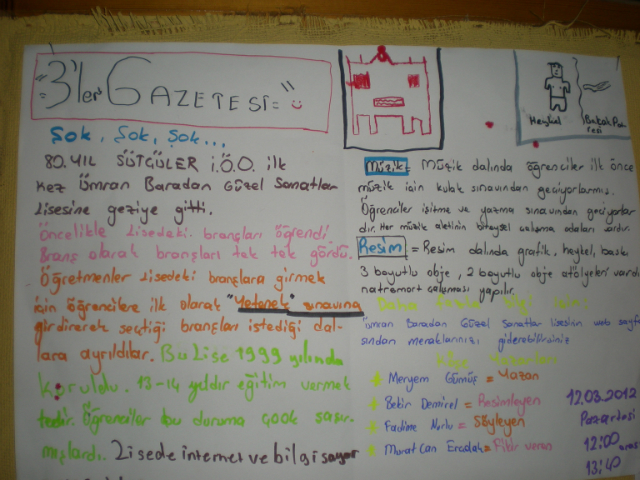 "3'ler GAZETESİ"
Şok, Şok, Şok...
80. YIL SÜTÇÜLER İ.Ö.O. ilk
kez Ümran Baradan Güzel Sanatlar
Lisesine geziye gitti.
Öncelikle Lisedeki branşları öğrendi
Branş olarak branşları tek tek gördü.
Öğretmenler Lisedeki branşlara girmek
için öğrencilere ilk olarak "Yetenek" sınavına
girdirerek seçtiği branşları istediği dal-
lara ayrıldılar. Bu Lise 1999 yılında
kuruldu. 13-14 yıldır eğitim vermek
tedir. Öğrenciler bu duruma çook şaşır-
mışlardı. Lisede internet ve bilgisayar
Heykel
Müzik = Müzik dalında öğrenciler ilk önce
müzik için kulak sınavından geçiyorlarmış.
Öğrenciler işitme ve yazma sınavından geçiyorlar
dır. Her müzik aletinin bireysel çalışma odaları vardır.
Resim = Resim dalında grafik, heykel, baskı
3 boyutlu obje, 2 boyutlu obje atölyeleri vardı
natremort çalışması yapılır.
Ümran Baradan Güzel Sanatlar Lisesinin web sayfa
sından meraklarınızı giderebilirsiniz
Meryem Gümüş = Yazan
Bekir Demirel = Resimleyen
Fadime = Söyleyen
Murat Can = Fikir veren
12.03.2012
Pazartesi
12:00
13:40